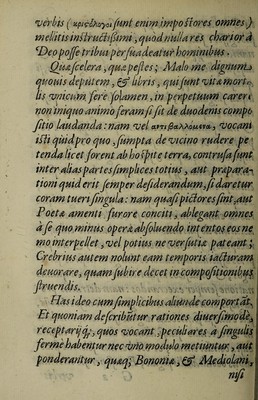 verbis (χρησόλογοι sunt enim impostores omnes)
mellitis instructißimi, quod nulla res charior à
Deo posse tribui persuadeatur hominibus.
Quæ scelera, quæ pestes; Malo me dignum
quouis deputem, & libris, qui sunt vitæ morta-
lis vnicum fere solamen, in perpetuum carere
non iniquo animo feram si sit de duodenis compo
sitio laudanda: nam vel ἀντιβαλλόμενα, vocant
isti quid pro quo, sumpta de vicino rudere pe
tenda licet forent ab hospite terra, contrusa sunt
inter alias partes simplices totius, aut præpara-
tioni quid erit semper desiderandum, si daretur
coram tueri singula: nam quasi pictores sint, aut
Poetæ amenti furore conciti, ablegant omnes
à se quo minus opera absoluendo intentos eos ne
mo interpellet, vel potius ne versutia pateant;
Crebrius autem nolunt eam temporis iacturam
deuorare, quam subire decet in compositionibus
struendis.
Has ideo cum simplicibus aliunde comportāt.
Et quoniam describūtur rationes diuersimodè,
receptarijq;, quos vocant, peculiares à singulis
fermè habentur nec vno modulo metiuntur, aut
ponderantur, quæq; Bononiæ, & Mediolani,
nisi